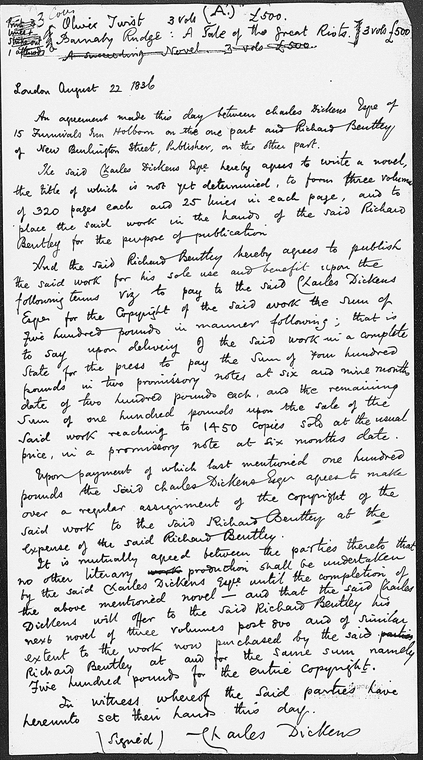 (A.)
Oliver Twist 3 vols £500.
Barnaby Rudge: A Tale of the Great Riots. 3 vols £500
A succeeding Novel 3 vols £500.
London August 22 1836
An agreement made this day between Charles Dickens Esqre of
15 Furnivals Inn Holborn on the one part and Richard Bentley
of New Burlington Street, Publisher, on the other part.
The said Charles Dickens Esqre hereby agrees to write a novel,
the title of which is not yet determined, to form three volumes
of 320 pages each and 25 lines in each page, and to
place the said work in the hands of the said Richard
Bentley for the purpose of publication
And the said Richard Bentley hereby agrees to publish
the said work for his sole use and benefit upon the
following terms Viz to pay to the said Charles Dickens
Esqre for the Copyright of the said work the sum of
Five hundred pounds in manner following; that is
to say upon delivery of the said work in a complete
state for the press to pay the sum of Four hundred
pounds in two promissory notes at six and nine months
date of two hundred pounds each, and the remaining
sum of one hundred pounds upon the sale of the
said work reaching to 1450 copies sold at the usual
price, in a promissory note at six months date.
Upon payment of which last mentioned one hundred
pounds the said Charles Dickens Esqre agrees to make
over a regular assignment of the copyright of the
said work to the said Richard Bentley at the
expense of the said Richard Bentley.
It is mutually agreed between the parties thereto that
no other literary work production shall be undertaken
by the said Charles Dickens Esqre until the completion of
the above mentioned novel — and that the said Charles
Dickens will offer to the said Richard Bentley his
next novel of three volumes post 8vo and of similar
extent to the work now purchased by the said parties
Richard Bentley at and for the same sum namely
Five hundred pounds for the entire Copyright.
In witness whereof the said parties have
hereunto set their hands this day.
(Signed) — Charles Dickens